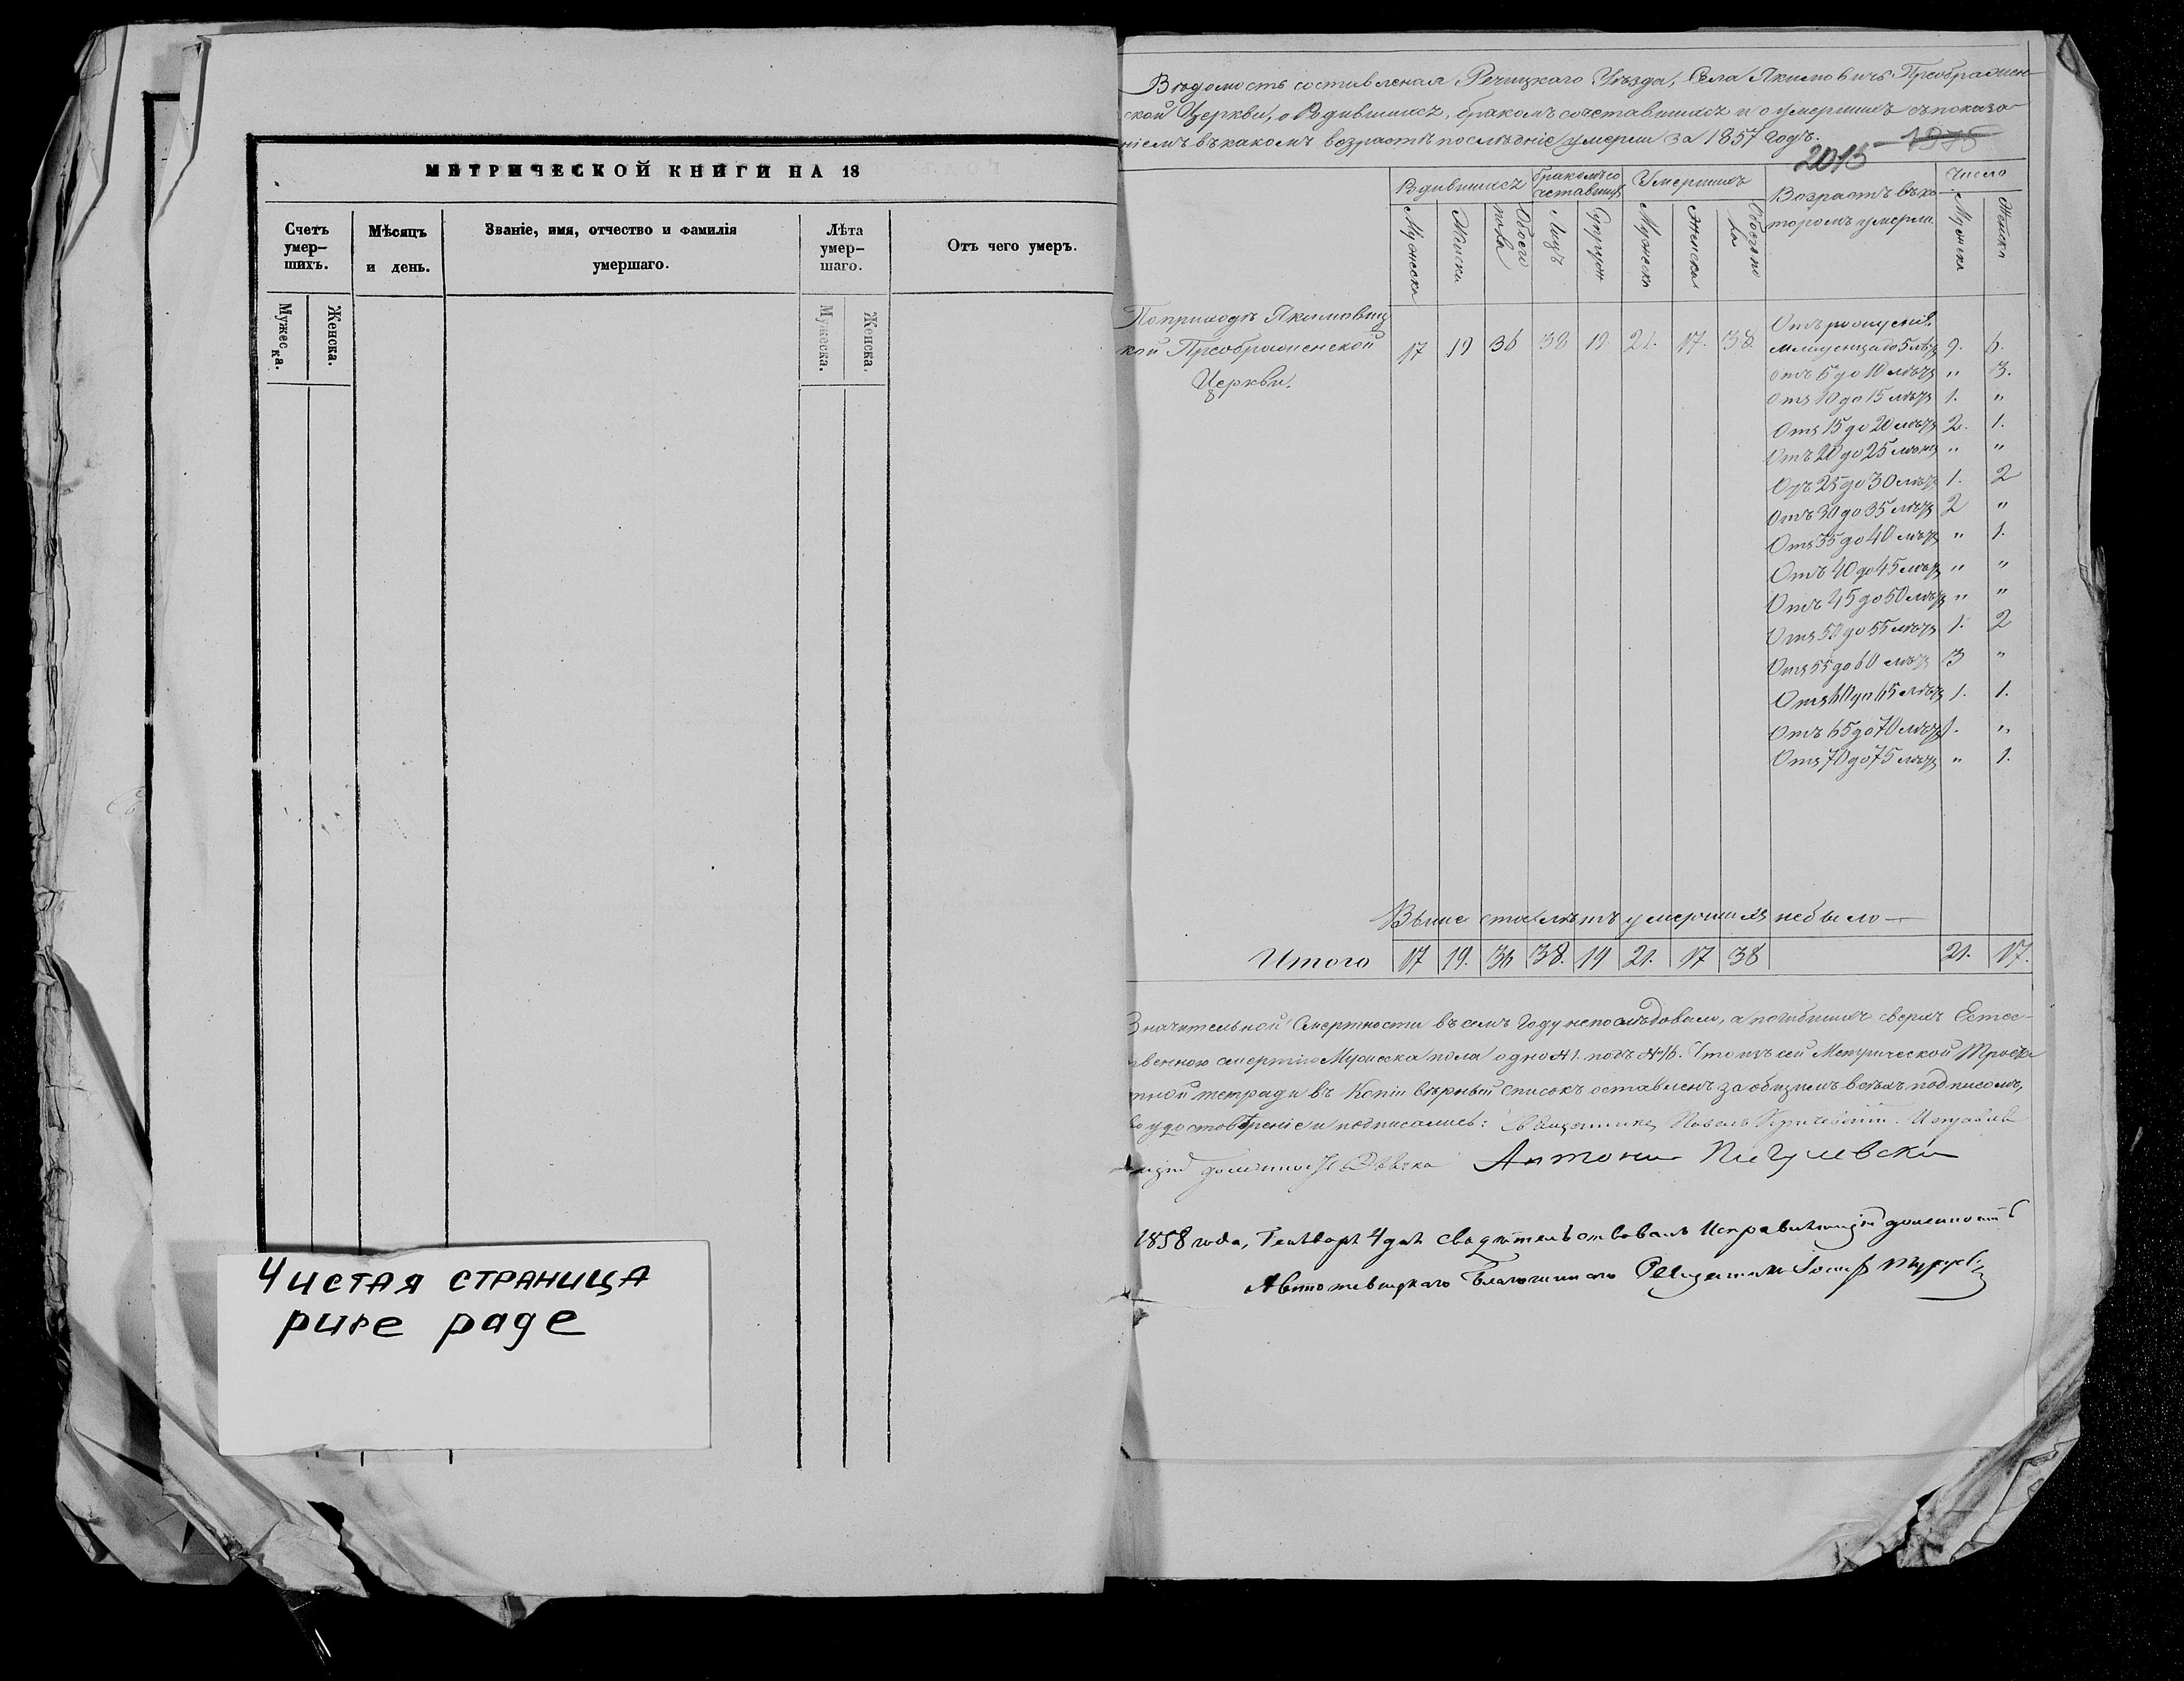 МЕТРИЧЕСКОЙ КНИГИ НА 18
Счетъ умер-шихъ.
Мѣсяцъ и день.
Званіе, имя, отчество и фамилія умершаго.
Лѣта умер-шаго.
Отъ чего умеръ.
Мужеска.
Женска.
Мужеска.
Женска.
Чистая страница
pure page
Вѣдомость составленая Речицкаго Уѣзда, Села Якимовичъ Преображен-
ской Церкви, о Родившихся, бракомъ сочетавшихся и о умершихъ съ показа-
ніемъ въ какомъ возрастѣ послѣдніе умерли за 1857 годъ.
2015 1976
Родившихся
бракомъ сочетавшихся
Умершихъ
Возрастъ въ которомъ умерли
Число
Мужеска
Женска
Обоего пола
Лицъ
Супруж
Мужеска
Женска
Обоего пола
Мужска
Женска
По приходу Якимовиц
кой Преображенской
Церкви.
17 19 36 38 19 21. 17. 38
Отъ рожденія
младенца до 5 лѣтъ 9. 6.
Отъ 5 до 10 лѣтъ " 3.
Отъ 10 до 15 лѣтъ 1. "
Отъ 15 до 20 лѣтъ 2. 1.
Отъ 20 до 25 лѣтъ " "
Отъ 25 до 30 лѣтъ 1. 2
Отъ 30 до 35 лѣтъ 2 "
Отъ 35 до 40 лѣтъ " 1.
Отъ 40 до 45 лѣтъ " "
Отъ 45 до 50 лѣтъ " "
Отъ 50 до 55 лѣтъ 1. 2
Отъ 55 до 60 лѣтъ 3 "
Отъ 60 до 65 лѣтъ 1. 1.
Отъ 65 до 70 лѣтъ 1. "
Отъ 70 до 75 лѣтъ " 1.
Выше ста лѣтъ умершихъ небыло —
Итого 17 19. 36 38. 19 21. 17 38 21. 17.
Значительной Смертности въ семъ Году непослѣдовало, а погибшихъ сверхъ Естес-
твенною смертію Мужеска пола одно № 1. подъ № 16. Что съ сей Метрической
тной тетради въ Копіи вѣрный списокъ оставленъ за общимъ всѣхъ подписомъ,
удостовѣреніе и подписались: Священникъ Павелъ
должность Дьячка Антоній
1858 года, Генваря 4 дня свидѣтельствовалъ Исправляющій должность
Благочиннаго Священникъ Іосифъ